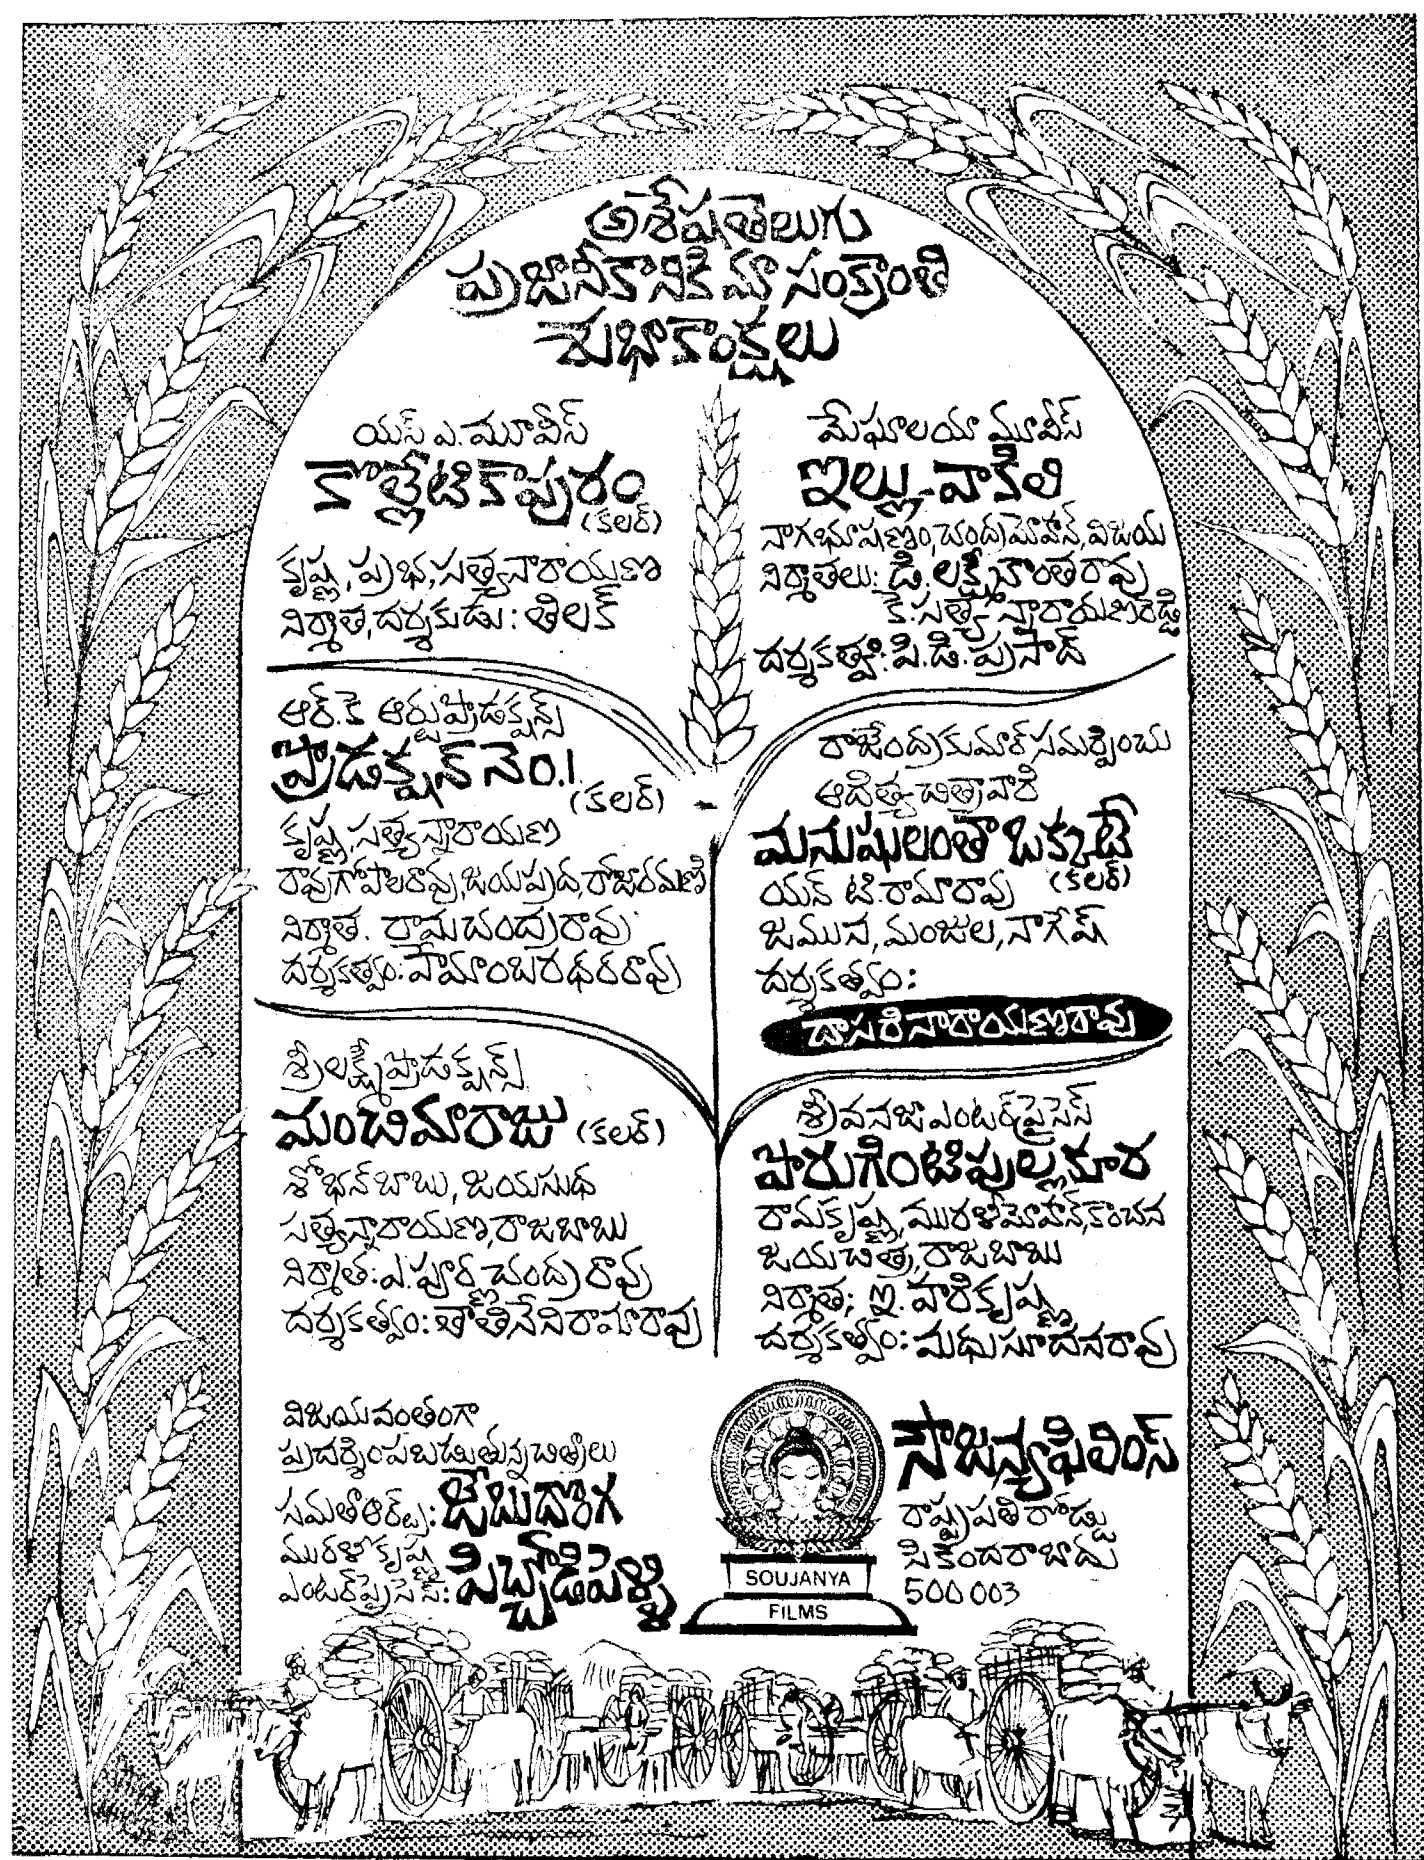 అశేషతెలుగు
ప్రజానీకానికి మా సంక్రాంతి
శుభాకాంక్షలు
యస్.ఎ.మూవీస్
కొల్లేటికాపురం
(కలర్)
కృష్ణ, ప్రభ, సత్యనారాయణ
నిర్మాత, దర్శకుడు: తిలక్
ఆర్.కె ఆర్టుప్రొడక్షన్స్
ప్రొడక్షన్ నెం.1
(కలర్)
కృష్ణ, సత్యన్నారాయణ
రావుగోపాలరావు, జయప్రద, రోజారమణి
నిర్మాత. రామచంద్రరావు
దర్శకత్వం: పేమాంబరధరరావు
శ్రీలక్ష్మీప్రొడక్షన్స్
మంచిమారాజు (కలర్)
శోభన్ బాబు, జయసుధ
సత్యన్నారాయణ, రాజబాబు
నిర్మాత: ఎ.పూర్ణచంద్రరావు
దర్శకత్వం: తాతినేనిరామారావు
మేఘాలయా మూవీస్
ఇల్లు-వాకిలి
నాగభూషణం, చంద్రమోహన్, విజయ
నిర్మాతలు: డి.లక్ష్మీకాంతరావు
కె.సత్యన్నారాయణరెడ్డి
దర్శకత్వం: పి.డి.ప్రసాద్
రాజేంద్రకుమార్ సమర్పించు
ఆదిత్యచిత్రావారి
మనుషులంతా ఒక్కటే
(కలర్)
యన్ టి.రామారావు
జమున, మంజుల, నాగేష్
దర్శకత్వం:
దాసరినారాయణరావు
శ్రీవనజాఎంటర్‌ప్రైసెస్
పొరుగింటిపుల్లకూర
రామకృష్ణ, మురళీమోహన్, కాంచన
జయచిత్ర, రాజబాబు
నిర్మాత; ఇ. హరికృష్ణ
దర్శకత్వం: మధుసూదనరావు
విజయవంతంగా
ప్రదర్శింపబడుతున్నచిత్రాలు
సమతాఆర్ట్స్: జేబుదొంగ
మురళీకృష్ణ
ఎంటర్‌ప్రైసెస్: పిచ్చోడిపెళ్ళి
SOUJANYA
FILMS
సౌజన్యఫిలింస్
రాష్ట్రపతిరోడ్డు
సికిందరాబాదు
500 003